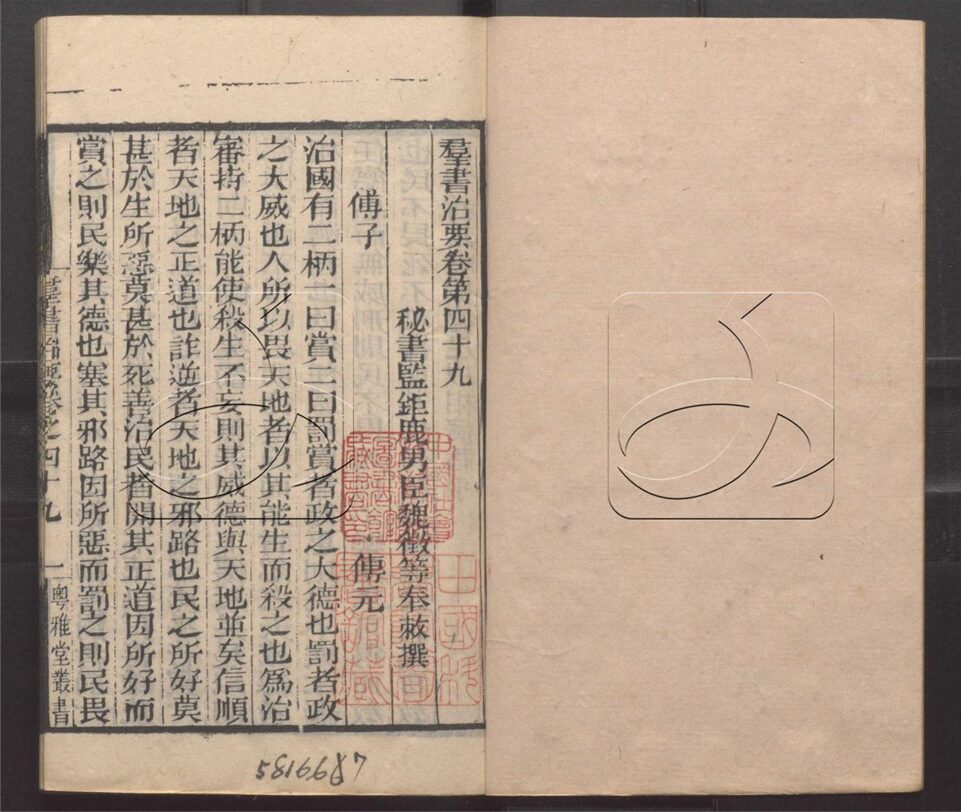 羣書治要卷第四十九
秘書監鉅鹿男臣魏徵等奉敕撰
傅子 傅元
治國有二柄一曰賞二曰罰賞者政之大德也罰者政
之大威也人所以畏天地者以其能生而殺之也爲治
審持二柄能使殺生不妄則其威德與天地並矣信順
者天地之正道也詐逆者天地之邪路也民之所好莫
甚於生所惡莫甚於死善治民者開其正道因所好而
賞之則民樂其德也塞其邪路因所惡而罰之則民畏
羣書治要卷之四十九 一 粵雅堂叢書
5819987